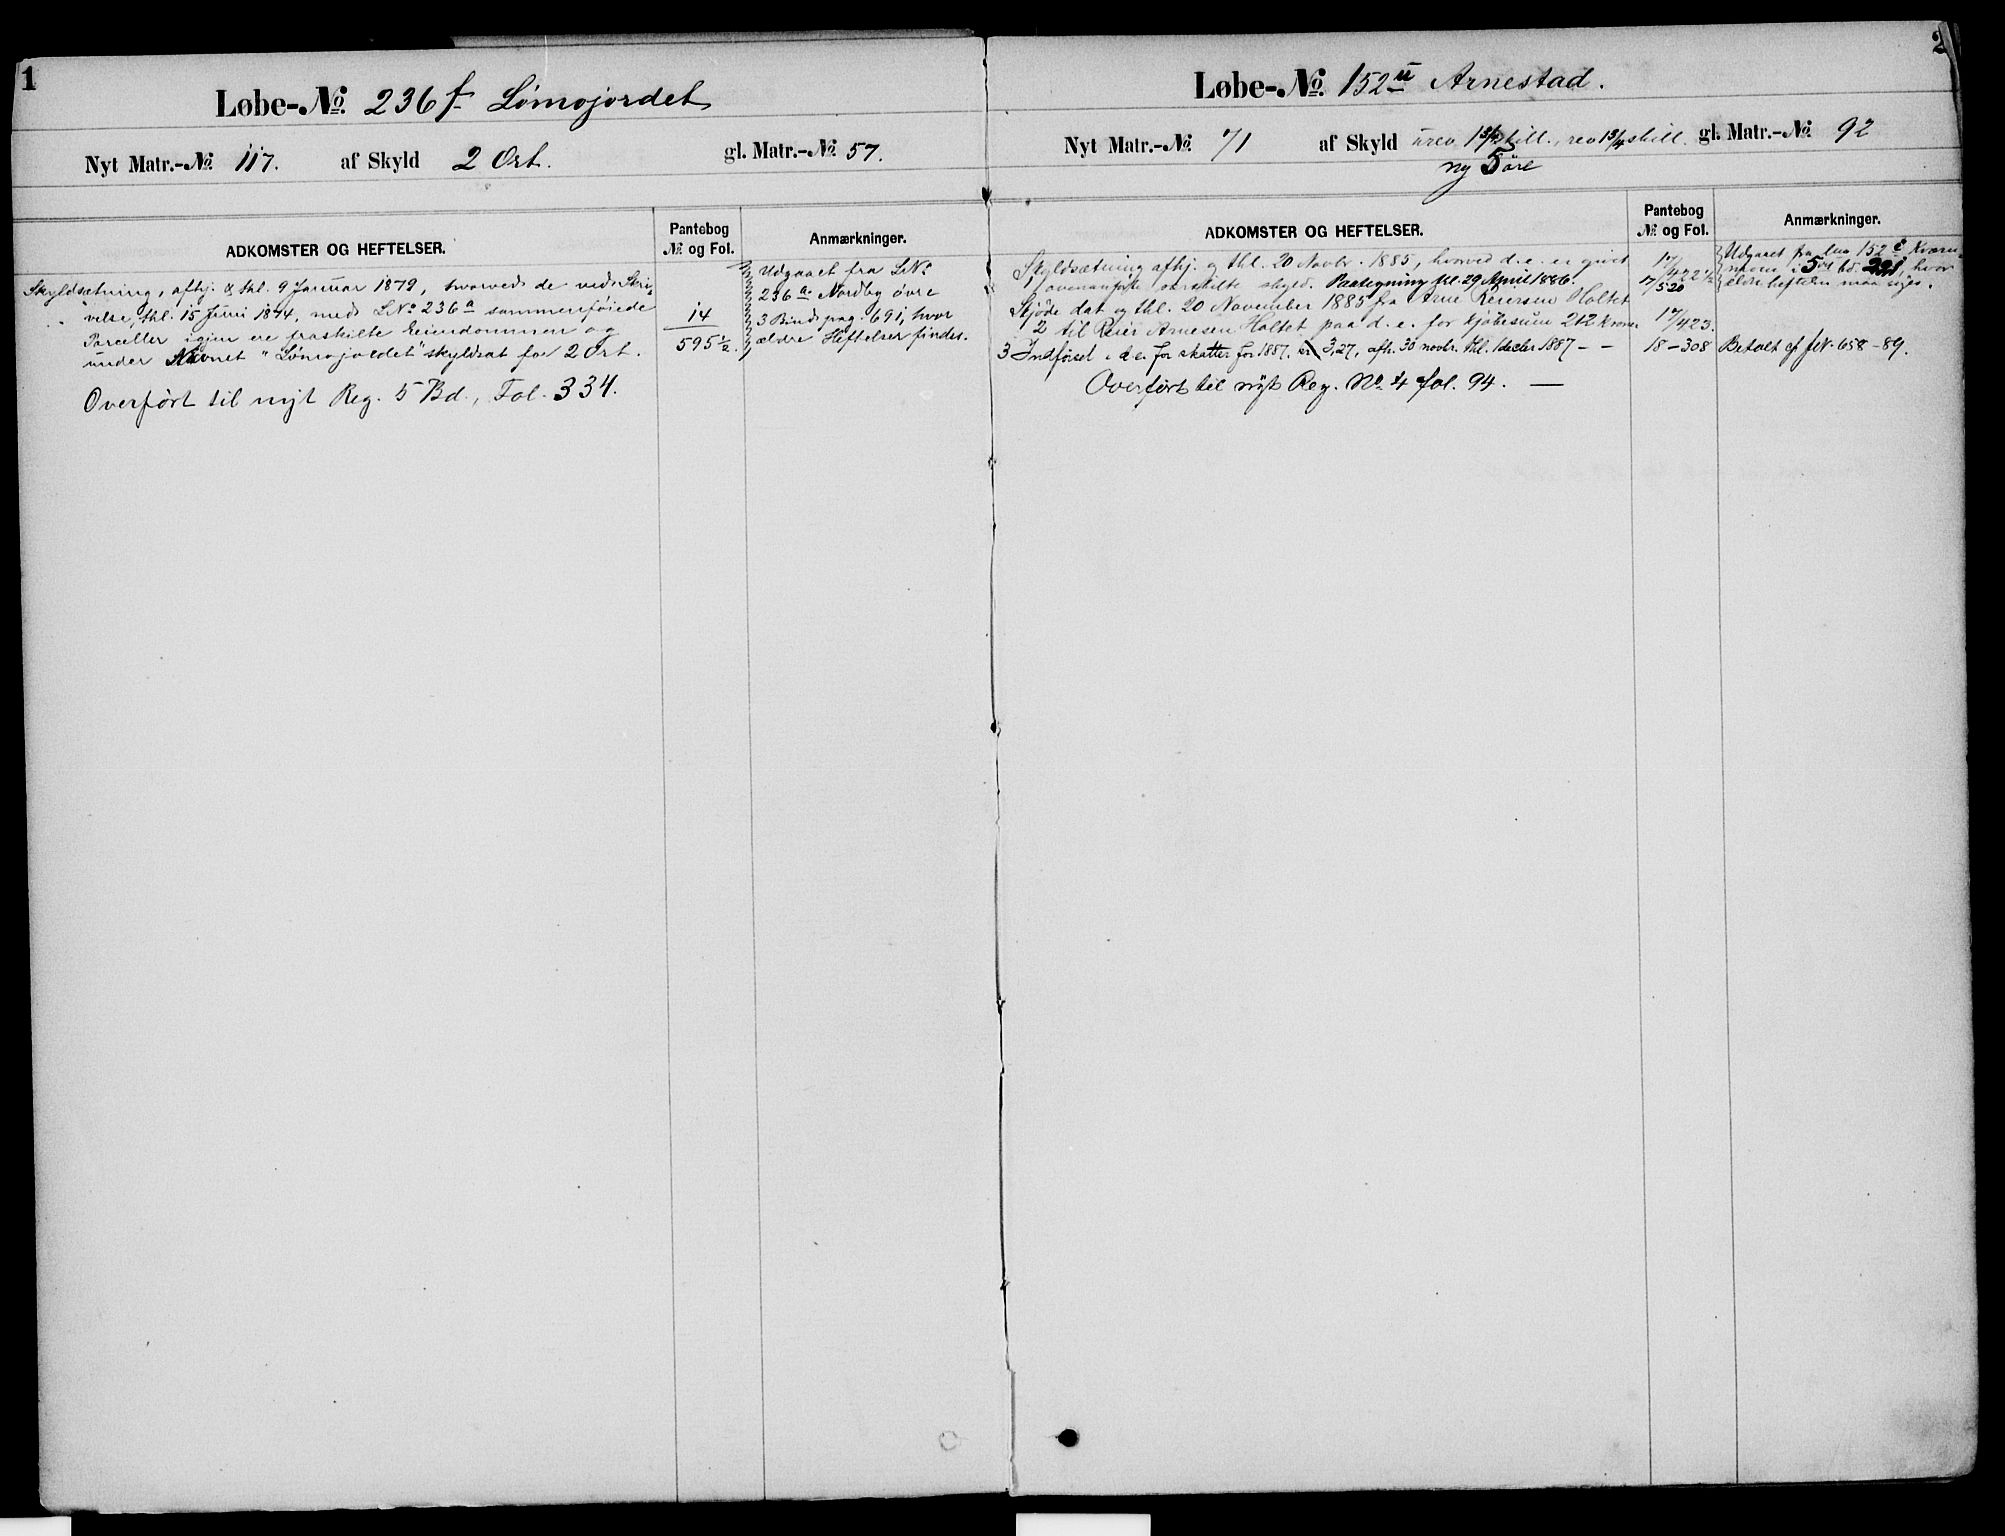 1
Løbe-No. 236 f Lømojordet
Nyt Matr.-No. 117. af Skyld 2 Ort. gl. Matr.-No. 57.
ADKOMSTER OG HEFTELSER.
Pantebog
No. og Fol.
Anmærkninger.
Skyldsætning, afhj. & thl. 9 Januar 1879, hvorved de ved Skri-
velse, thl. 15 Juni 1874, med LNo 236a sammenføiede
Parceller igjen ere fraskilte Eiendommen og
under Navnet "Lømojordet" skyldsat for 2 Ort.
14
595 1/2.
Udgaaet fra LNo
236a Nordby øvre
3 Bind pag. 691, hvor
ældre Heftelser findes.
Overført til nyt Reg. 5 Bd., Fol. 334.
2
Løbe-No. 152 u Arnestad.
Nyt Matr.-No. 71 af Skyld urev 1 skill., rev 1 3/4 skill. gl. Matr.-No. 92
ny 5 øre
ADKOMSTER OG HEFTELSER.
Pantebog
No. og Fol.
Anmærkninger.
1 Skyldsætning afhj. og thl. 20 Novbr. 1885, hvorved d. e. er givet
ovenanførte særskilte skyld. Paategning thl. 29 April 1886.
17/422 1/2
17/520
Udgaaet fra 152
5 bd. 221, hvor
ældre heftelser maa søges.
2 Skjøde dat og thl. 20 November 1885 fra Arne Reiersen Holtet
til Reier Arnesen Holtet paa d. e. for kjøbesum 212 Kroner
17/423.
3 Indførsel i d. e. for skatter for 1887, kr 3,27, afh. 30 novbr. thl. 1 decbr 1887 - -
18-308
Betalt cf. 658-89.
Overført til nyt Reg. No. 4 fol. 94. —